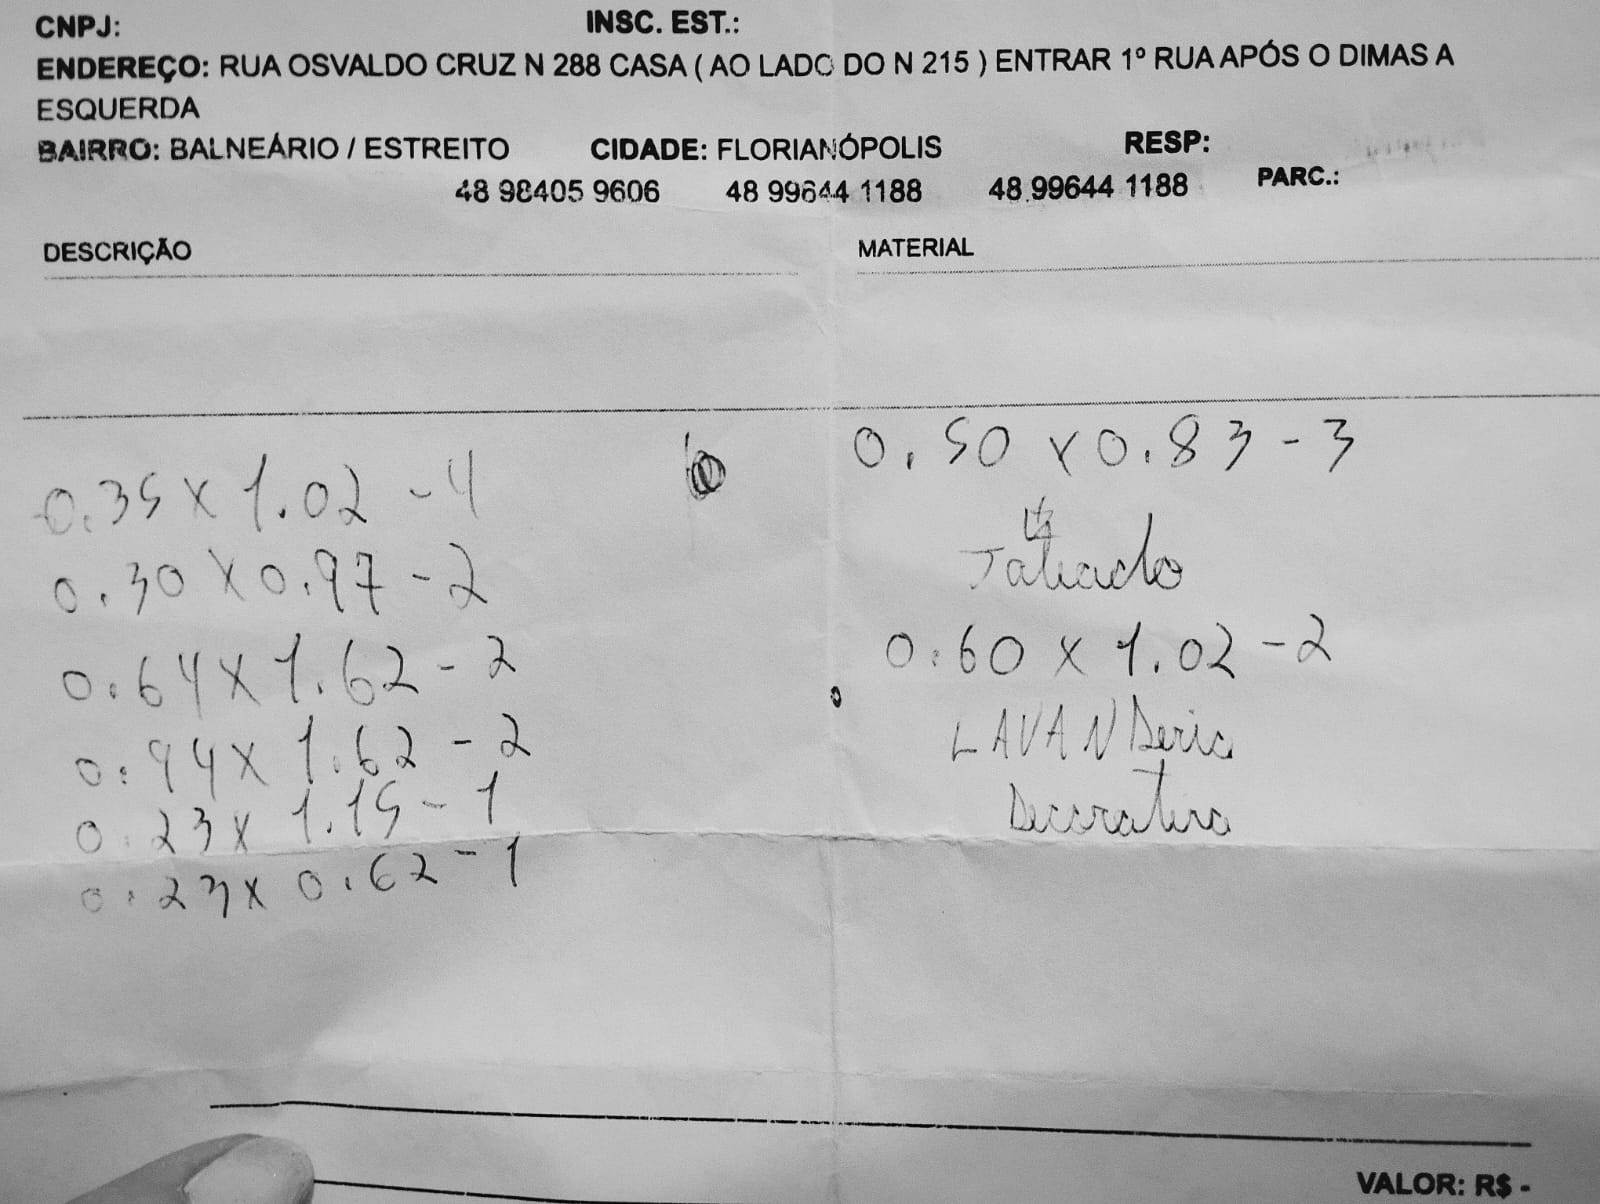 CNPJ: INSC. EST.:
ENDEREÇO: RUA OSVALDO CRUZ N 288 CASA ( AO LADO DO N 215 ) ENTRAR 1º RUA APÓS O DIMAS A
ESQUERDA
BAIRRO: BALNEÁRIO / ESTREITO CIDADE: FLORIANÓPOLIS RESP:
48 98405 9606 48 99644 1188 48 99644 1188 PARC.:
DESCRIÇÃO MATERIAL
0.35 x 1.02 - 4
0.30 x 0.97 - 2
0.64 x 1.62 - 2
0.94 x 1.62 - 2
0.23 x 1.15 - 1
0.23 x 0.62 - 1
0.50 x 0.83 - 3
0.60 x 1.02 - 2
LAVANDeria
Decorativa
VALOR: R$ -